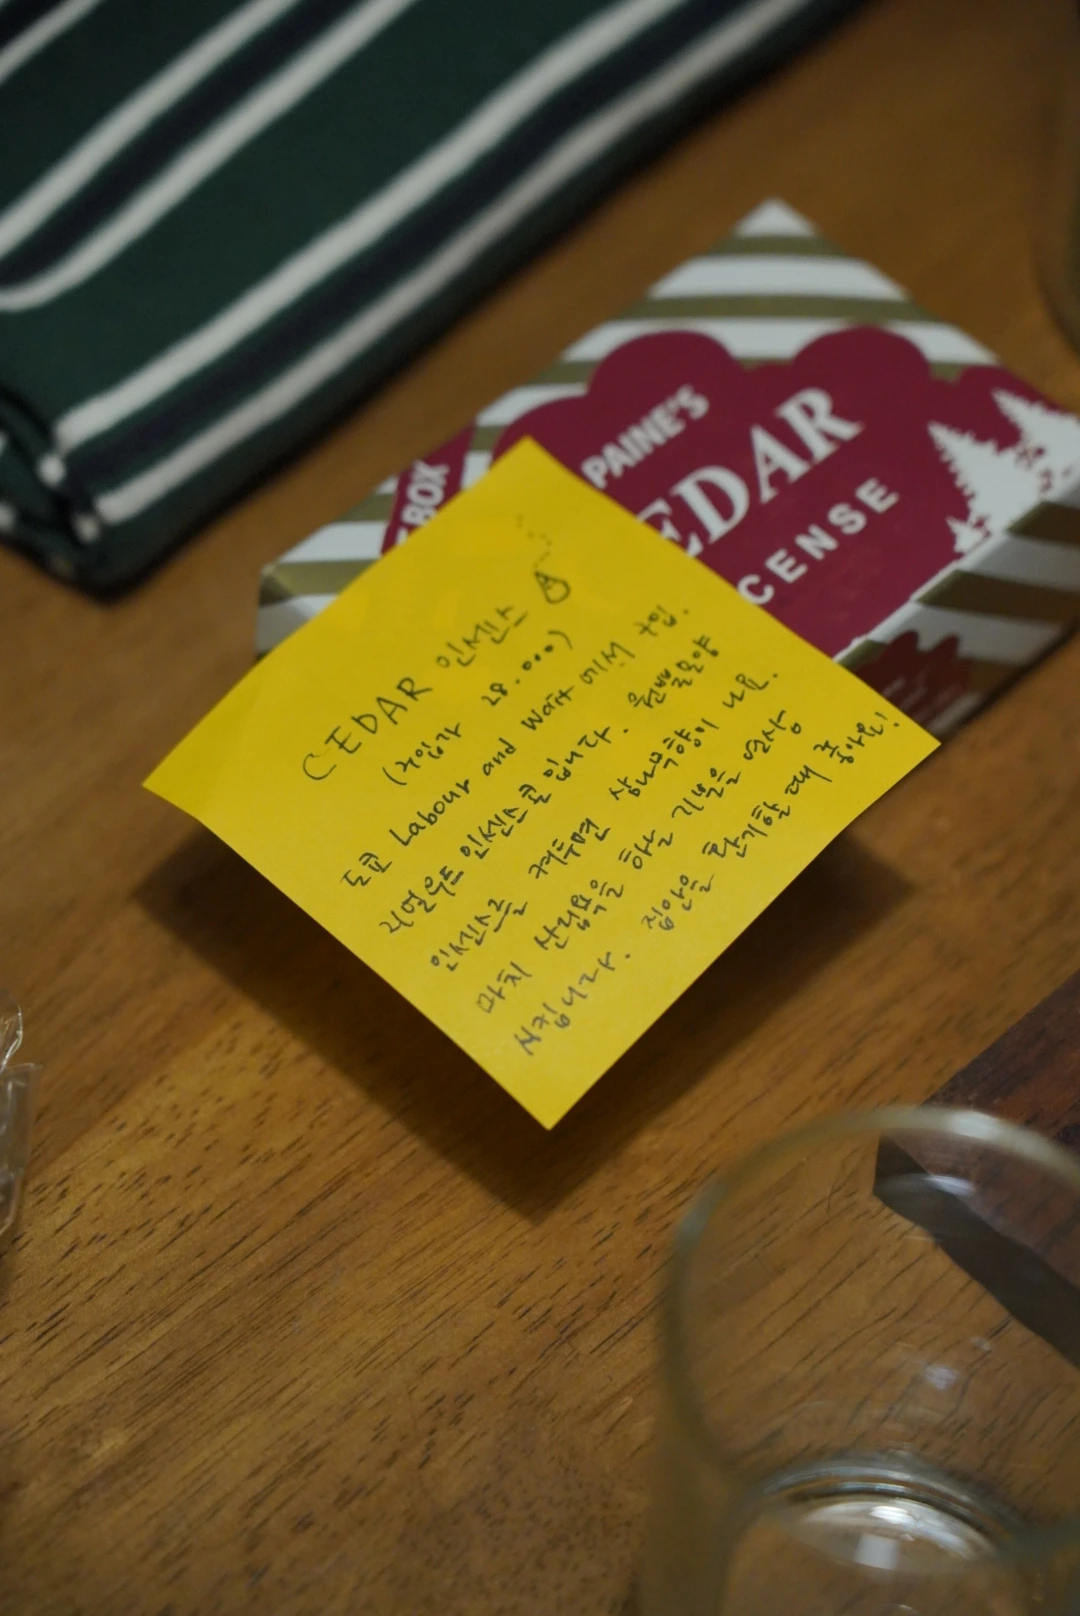 BOX
PAINE'S
EDAR
CENSE
CEDAR 인센스
(구입가 28.000)
도쿄 Labour and Wait 에서 구입.
리얼우드 인센스콘 입니다. 원뿔모양
인센스를 켜두면 삼나무향이 나요.
마치 산림욕을 하는 기분을 연상
시킵니다. 집안을 환기할 때 좋아요!